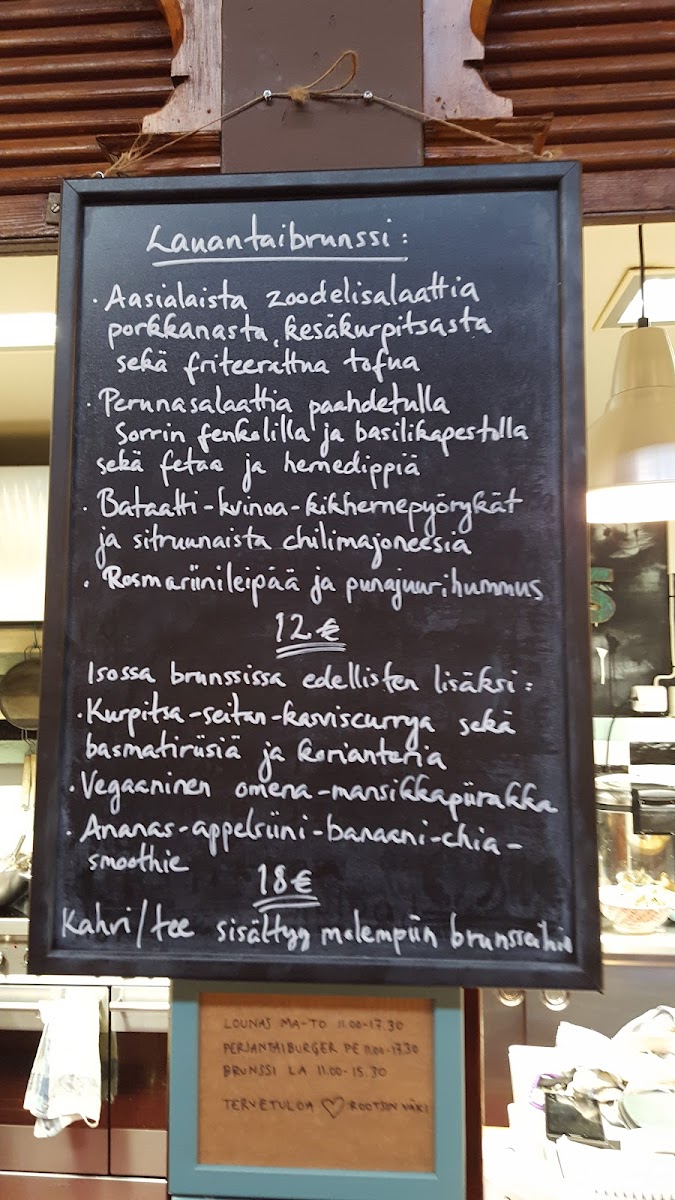 Lauantaibrunssi:
· Aasialaista zoodelisalaattia
porkkanasta, kesäkurpitsasta
sekä friteerattua tofua
· Perunasalaattia paahdetulla
Sorrin fenkolilla ja basilikapestolla
sekä fetaa ja hernedippiä
· Bataatti-kvinoa-kikhernepyörykät
ja sitruunaista chilimajoneesia
· Rosmariinileipää ja punajuurihummus
12€
Isossa brunssissa edellisten lisäksi:
· Kurpitsa-seitan-kasviscurrya sekä
basmatiriisiä ja korianteria
· Vegaaninen omena-mansikkapiirakka
· Ananas-appelsiini-banaani-chia-
smoothie
18€
Kahvi/tee sisältyy molempiin brunsseihin
LOUNAS MA-TO 11.00-17.30
PERJANTAIBURGER PE 11.00-17.30
BRUNSSI LA 11.00-15.30
TERVETULOA ♡ ROOTSIN VÄKI